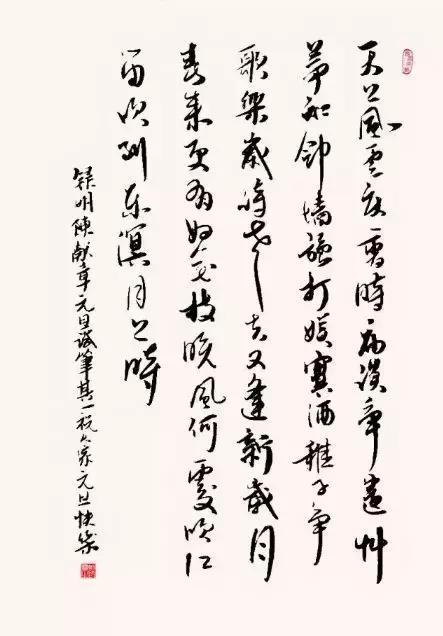 天上風雲庆會時廟谟争遗艸
茅知邻墙旋打娱賓酒稚子争
歌樂歲詩老去又逢新歲月
春来更有好花枝晚風何處江
吹到東溟月上時
録明陳献章元旦试筆其一祝大家元旦快樂